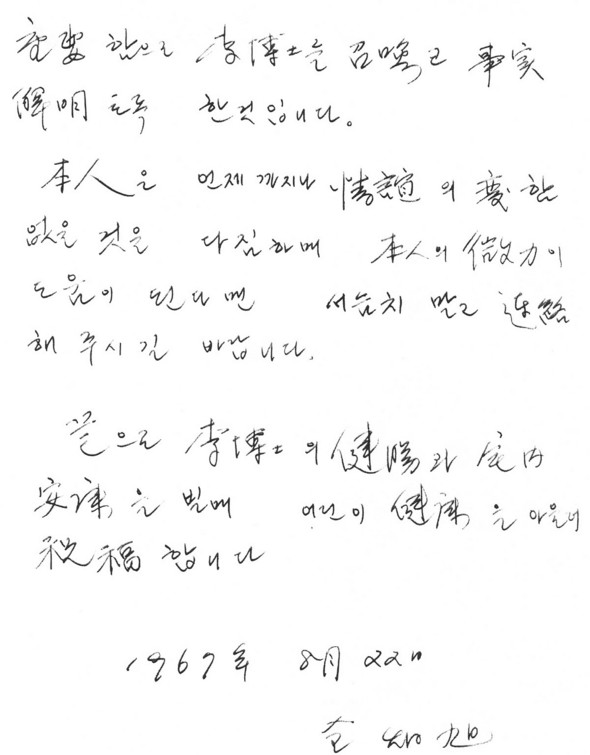 重要 함으로 李博士를 召喚코 事実
解明 토록 한것입니다.
本人은 언제 까지나 情誼의 変함
없을 것을 다짐하며 本人의 微力이
도움이 된다면 서슴치 말고 連絡
해 주시길 바랍니다.
끝으로 李博士의 健勝과 宅内
安康을 빌며 어린이 健康을 아울러
祝福 합니다
1967年 8月 22日
金炯旭